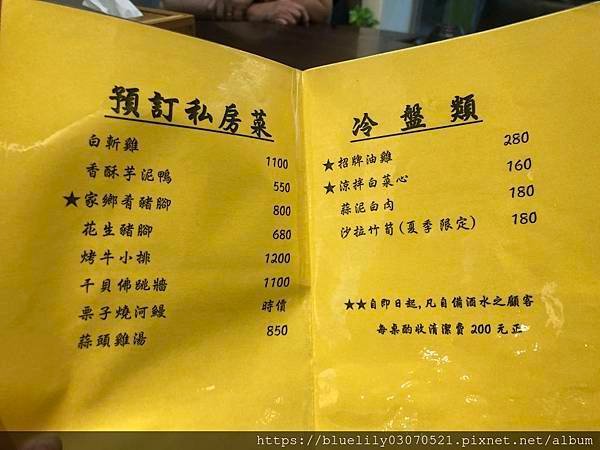 預訂私房菜
白斬雞 1100
香酥芋泥鴨 550
★家鄉肴豬腳 800
花生豬腳 680
烤牛小排 1200
干貝佛跳牆 1100
栗子燒河鰻 時價
蒜頭雞湯 850
冷盤類
★招牌油雞 280
★涼拌白菜心 160
蒜泥白肉 180
沙拉竹筍(夏季限定) 180
★★自即日起,凡自備酒水之顧客
每桌酌收清潔費200元正
https://bluelily03070521.pixnet.net/album